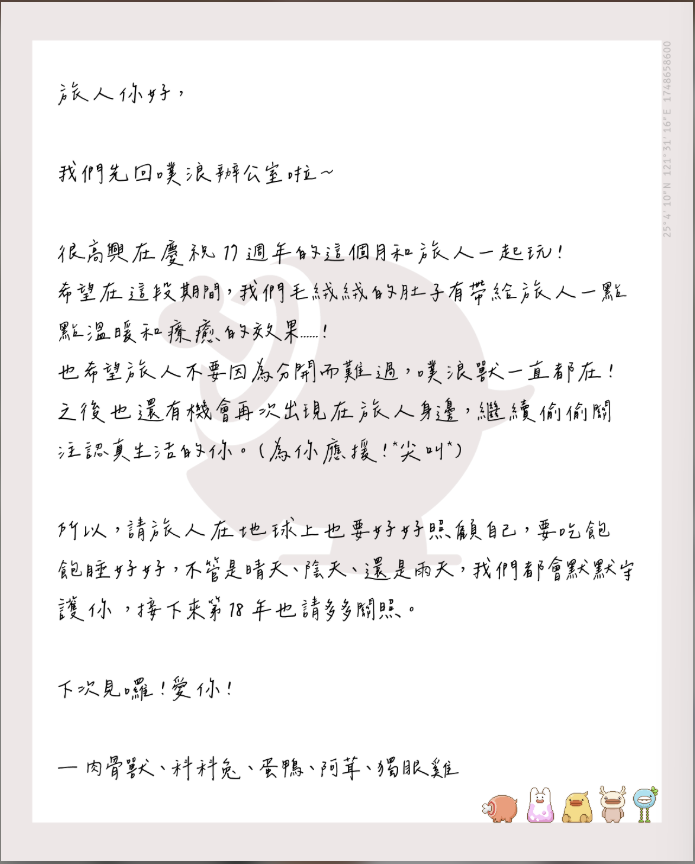 旅人你好，
我們先回噗浪辦公室啦～
很高興在慶祝 17 週年的這個月和旅人一起玩！
希望在這段期間，我們毛絨絨的肚子有帶給旅人一點
點溫暖和療癒的效果……！
也希望旅人不要因為分開而難過，噗浪獸一直都在！
之後也還有機會再次出現在旅人身邊，繼續偷偷關
注認真生活的你。(為你應援！*尖叫*)
所以，請旅人在地球上也要好好照顧自己，要吃飽
飽睡好好，不管是晴天、陰天、還是雨天，我們都會默默守
護你，接下來第 18 年也請多多關照。
下次見囉！愛你！
— 肉骨獸、科科兔、蛋鴨、阿茸、獨眼雞
25° 4' 10"N 121° 31' 16"E 1748658600